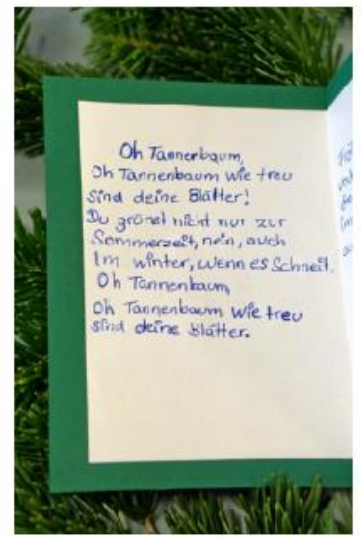 Oh Tannenbaum,
Oh Tannenbaum wie treu
sind deine Blätter!
Du grünst nicht nur zur
Sommerzeit, nein, auch
Im winter, wenn es Schneit.
Oh Tannenbaum,
Oh Tannenbaum wie treu
sind deine Blätter.